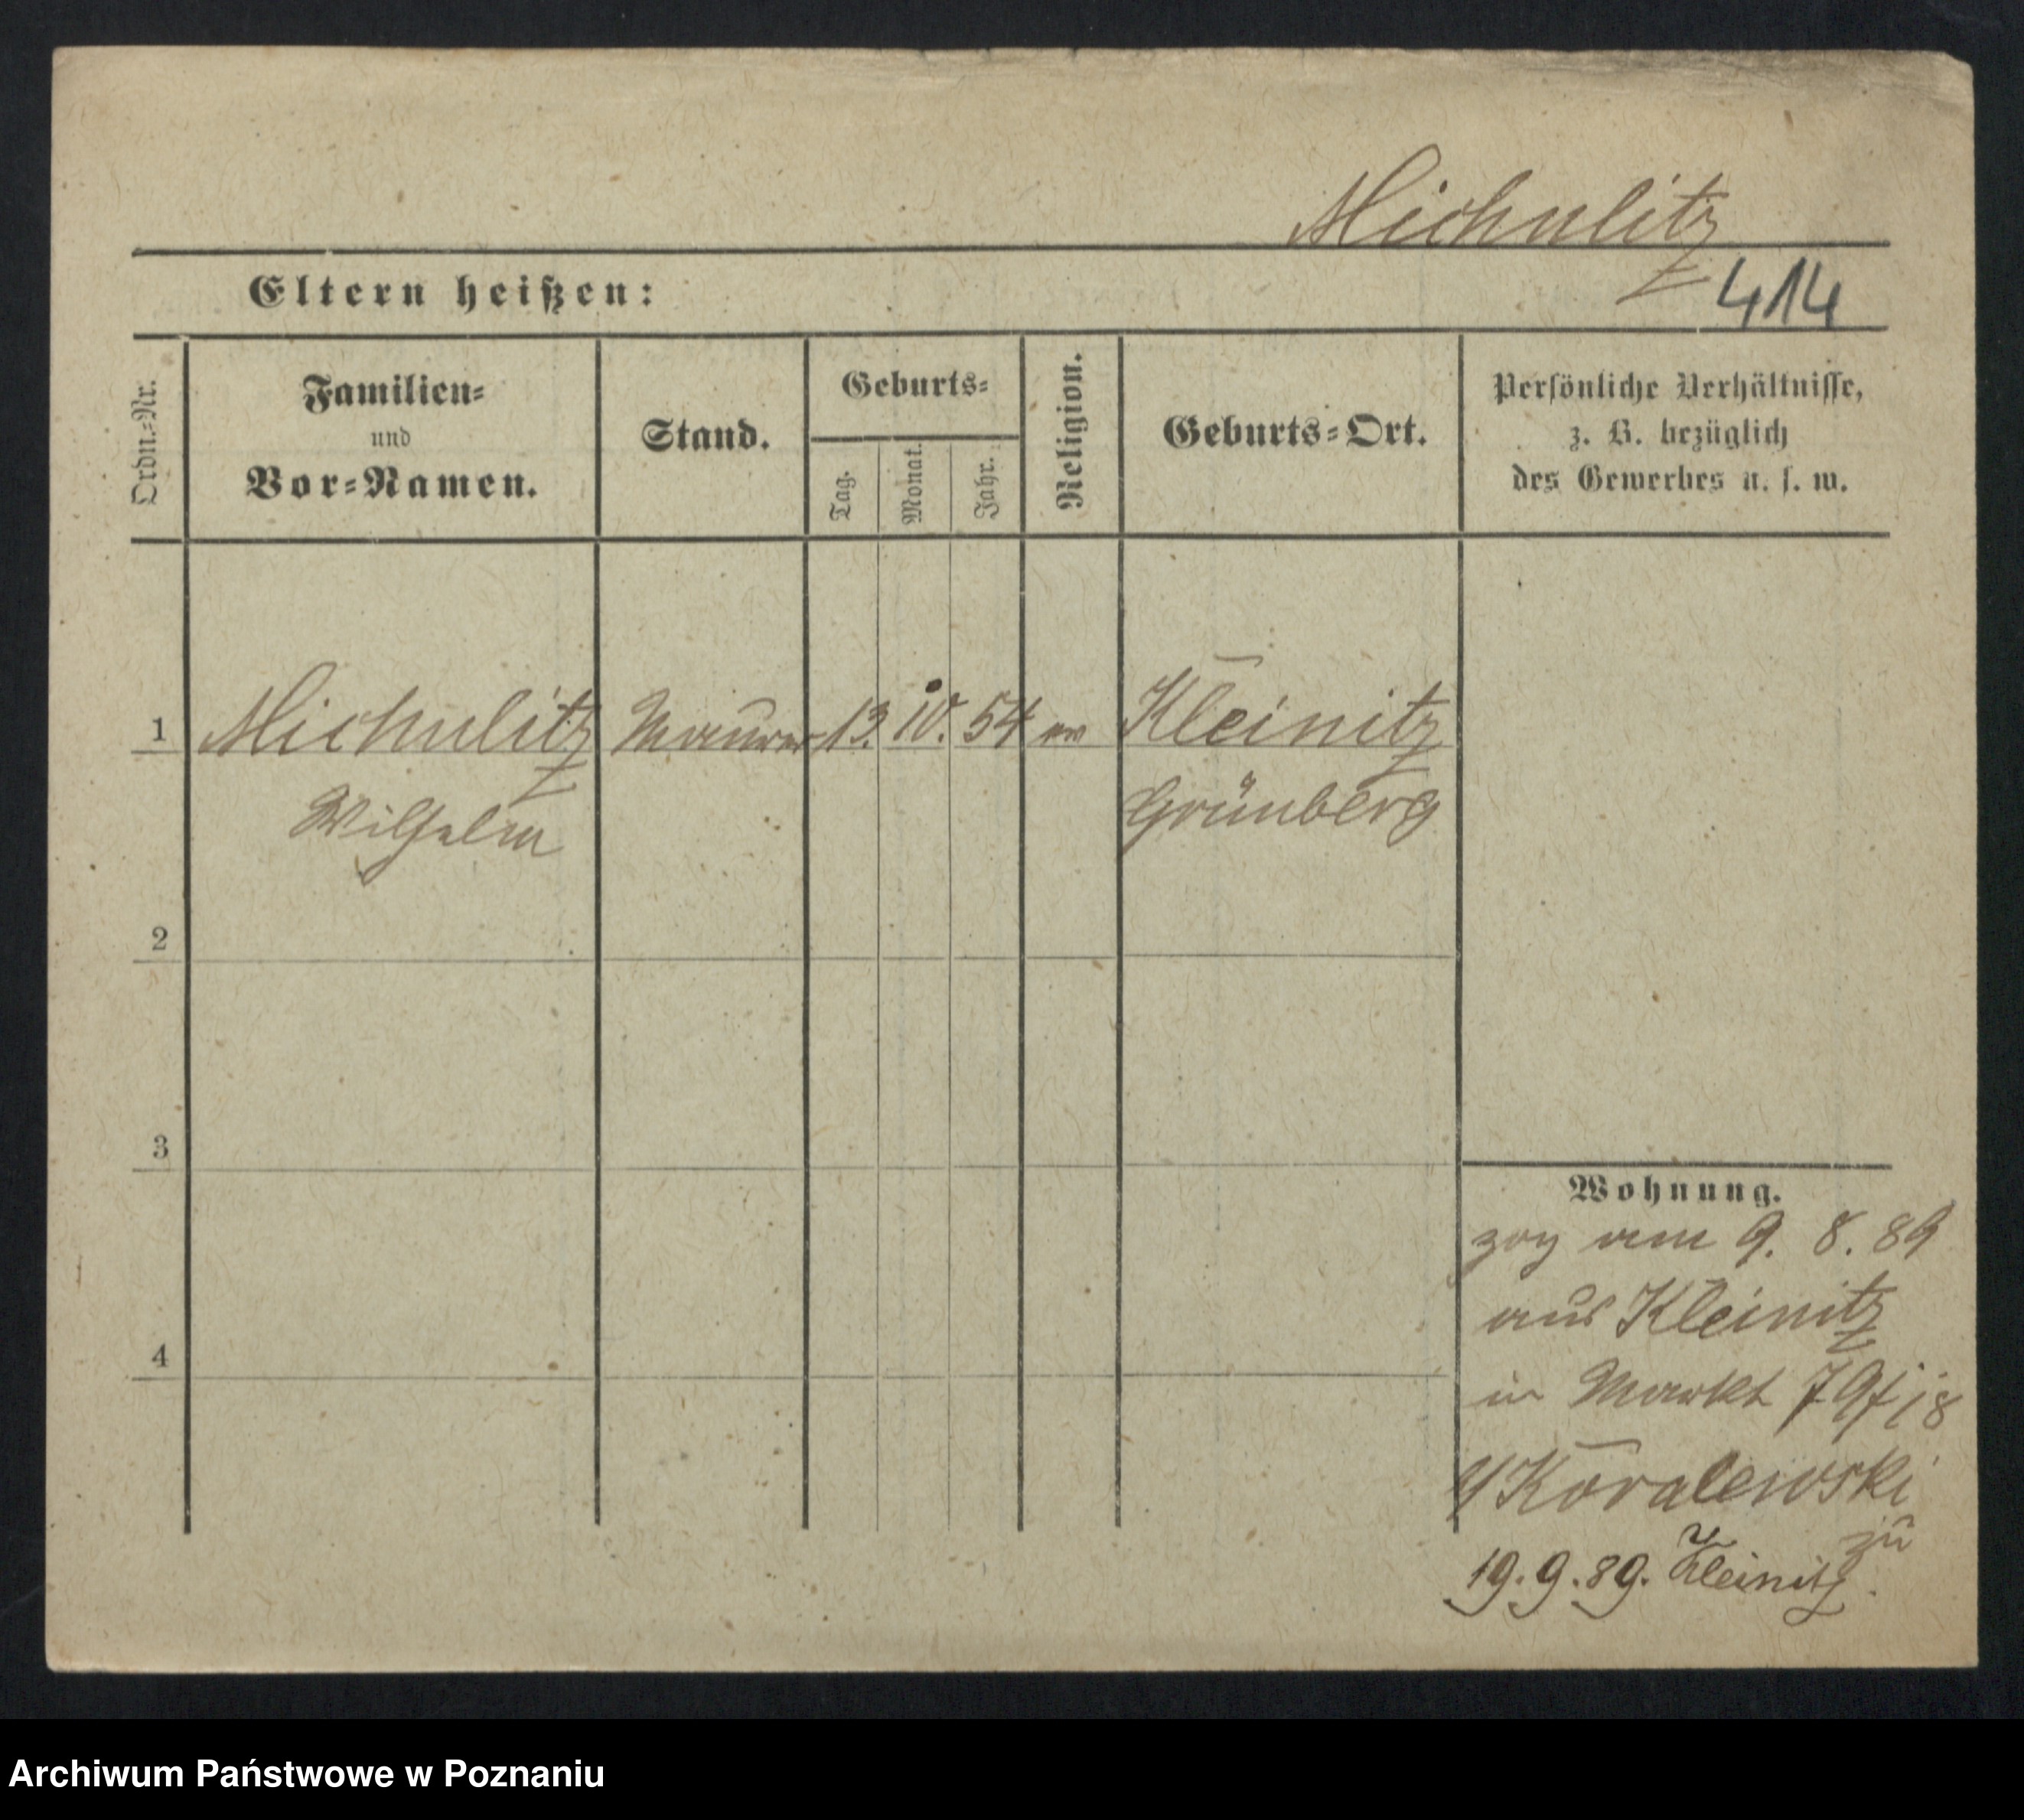 Michulitz
Eltern heißen:
414
Ordn.-Nr.
Familien-
und
Vor-Namen.
Stand.
Geburts-
Tag.
Monat.
Jahr.
Religion.
Geburts-Ort.
Persönliche Verhältnisse,
z. B. bezüglich
des Gewerbes u. s. w.
1 Michulitz Maurer 13. 10. 54 ev Kleinitz
Wilhelm Grünberg
2
3
4
Wohnung.
zog am 9. 8. 89
aus Kleinitz
in Markt 79
Koralewski
zu
19. 9. 89. Kleinitz.
Archiwum Państwowe w Poznaniu